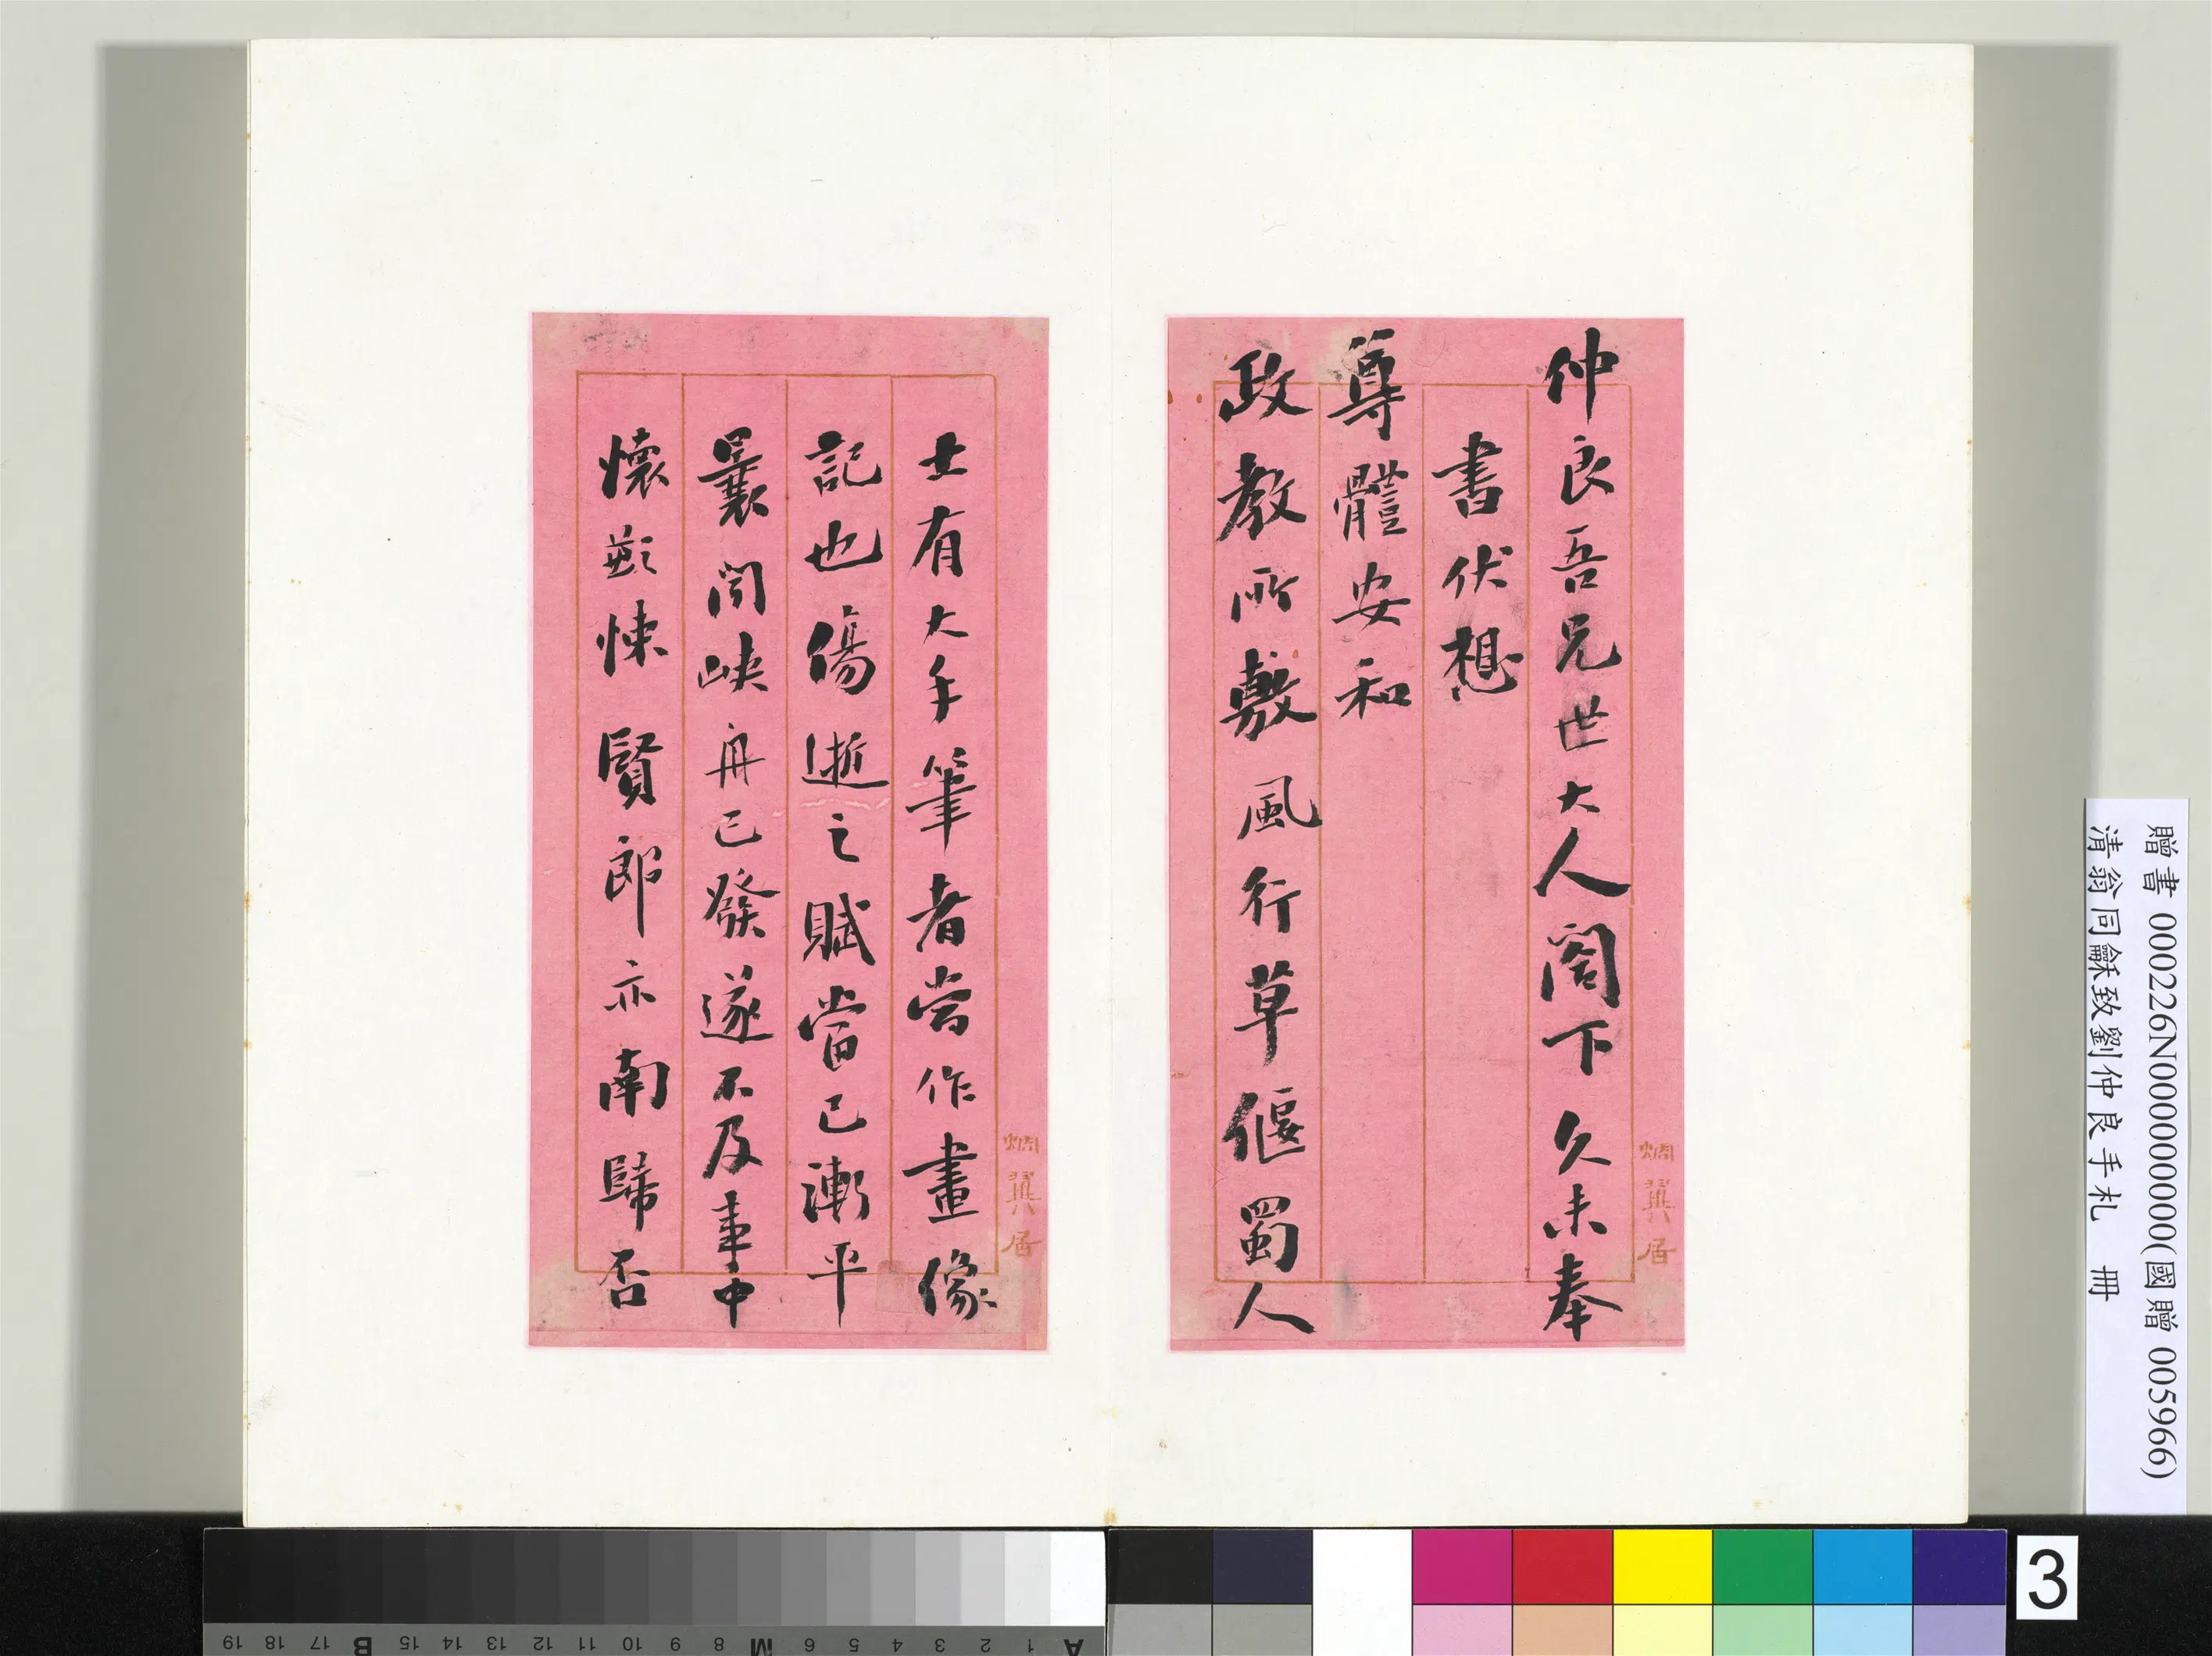 仲良吾兄世大人閣下久未奉
書伏想
尊體安和
政教所敷風行草偃蜀人
士有大手筆者當作畫像
記也傷逝之賦當已漸平
曩聞峽舟已發遂不及事中
懷慙悚賢郎亦南歸否
居
居
贈書 000226N000000000(國贈 005966)
清翁同龢致劉仲良手札 冊
3
A 1 2 3 4 5 6 M 8 9 10 11 12 13 14 15 B 17 18 19